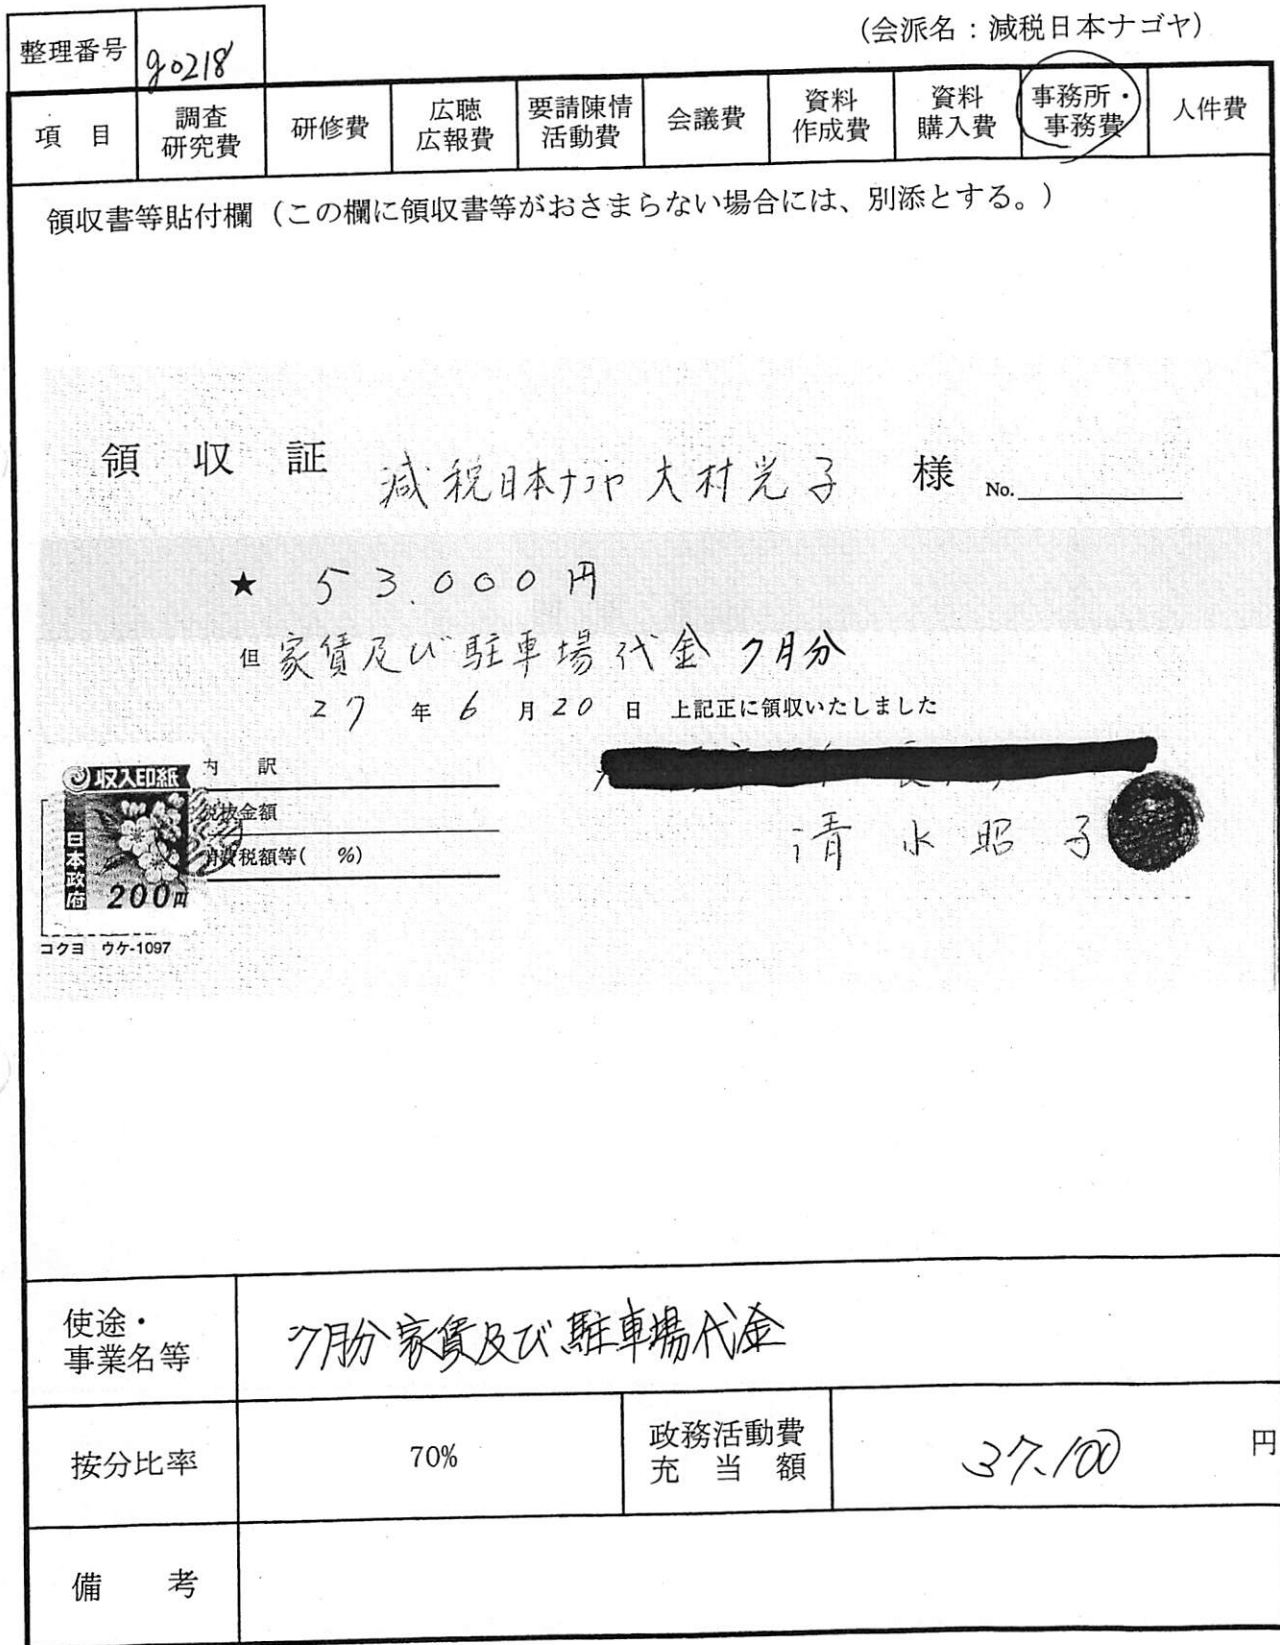 (会派名：減税日本ナゴヤ)
整理番号 g0218
項 目 調査研究費 研修費 広聴広報費 要請陳情活動費 会議費 資料作成費 資料購入費 事務所・事務費 人件費
領収書等貼付欄（この欄に領収書等がおさまらない場合には、別添とする。）
領 収 証 減税日本ナゴヤ 大村光子 様 No.
★ 53.000円
但 家賃及び駐車場代金 7月分
27 年 6 月 20 日 上記正に領収いたしました
収入印紙
日本政府
200円
内 訳
税抜金額
消費税額等( %)
清水昭子
コクヨ ウケ-1097
使途・事業名等 7月分家賃及び駐車場代金
按分比率 70% 政務活動費充当額 37.100 円
備 考